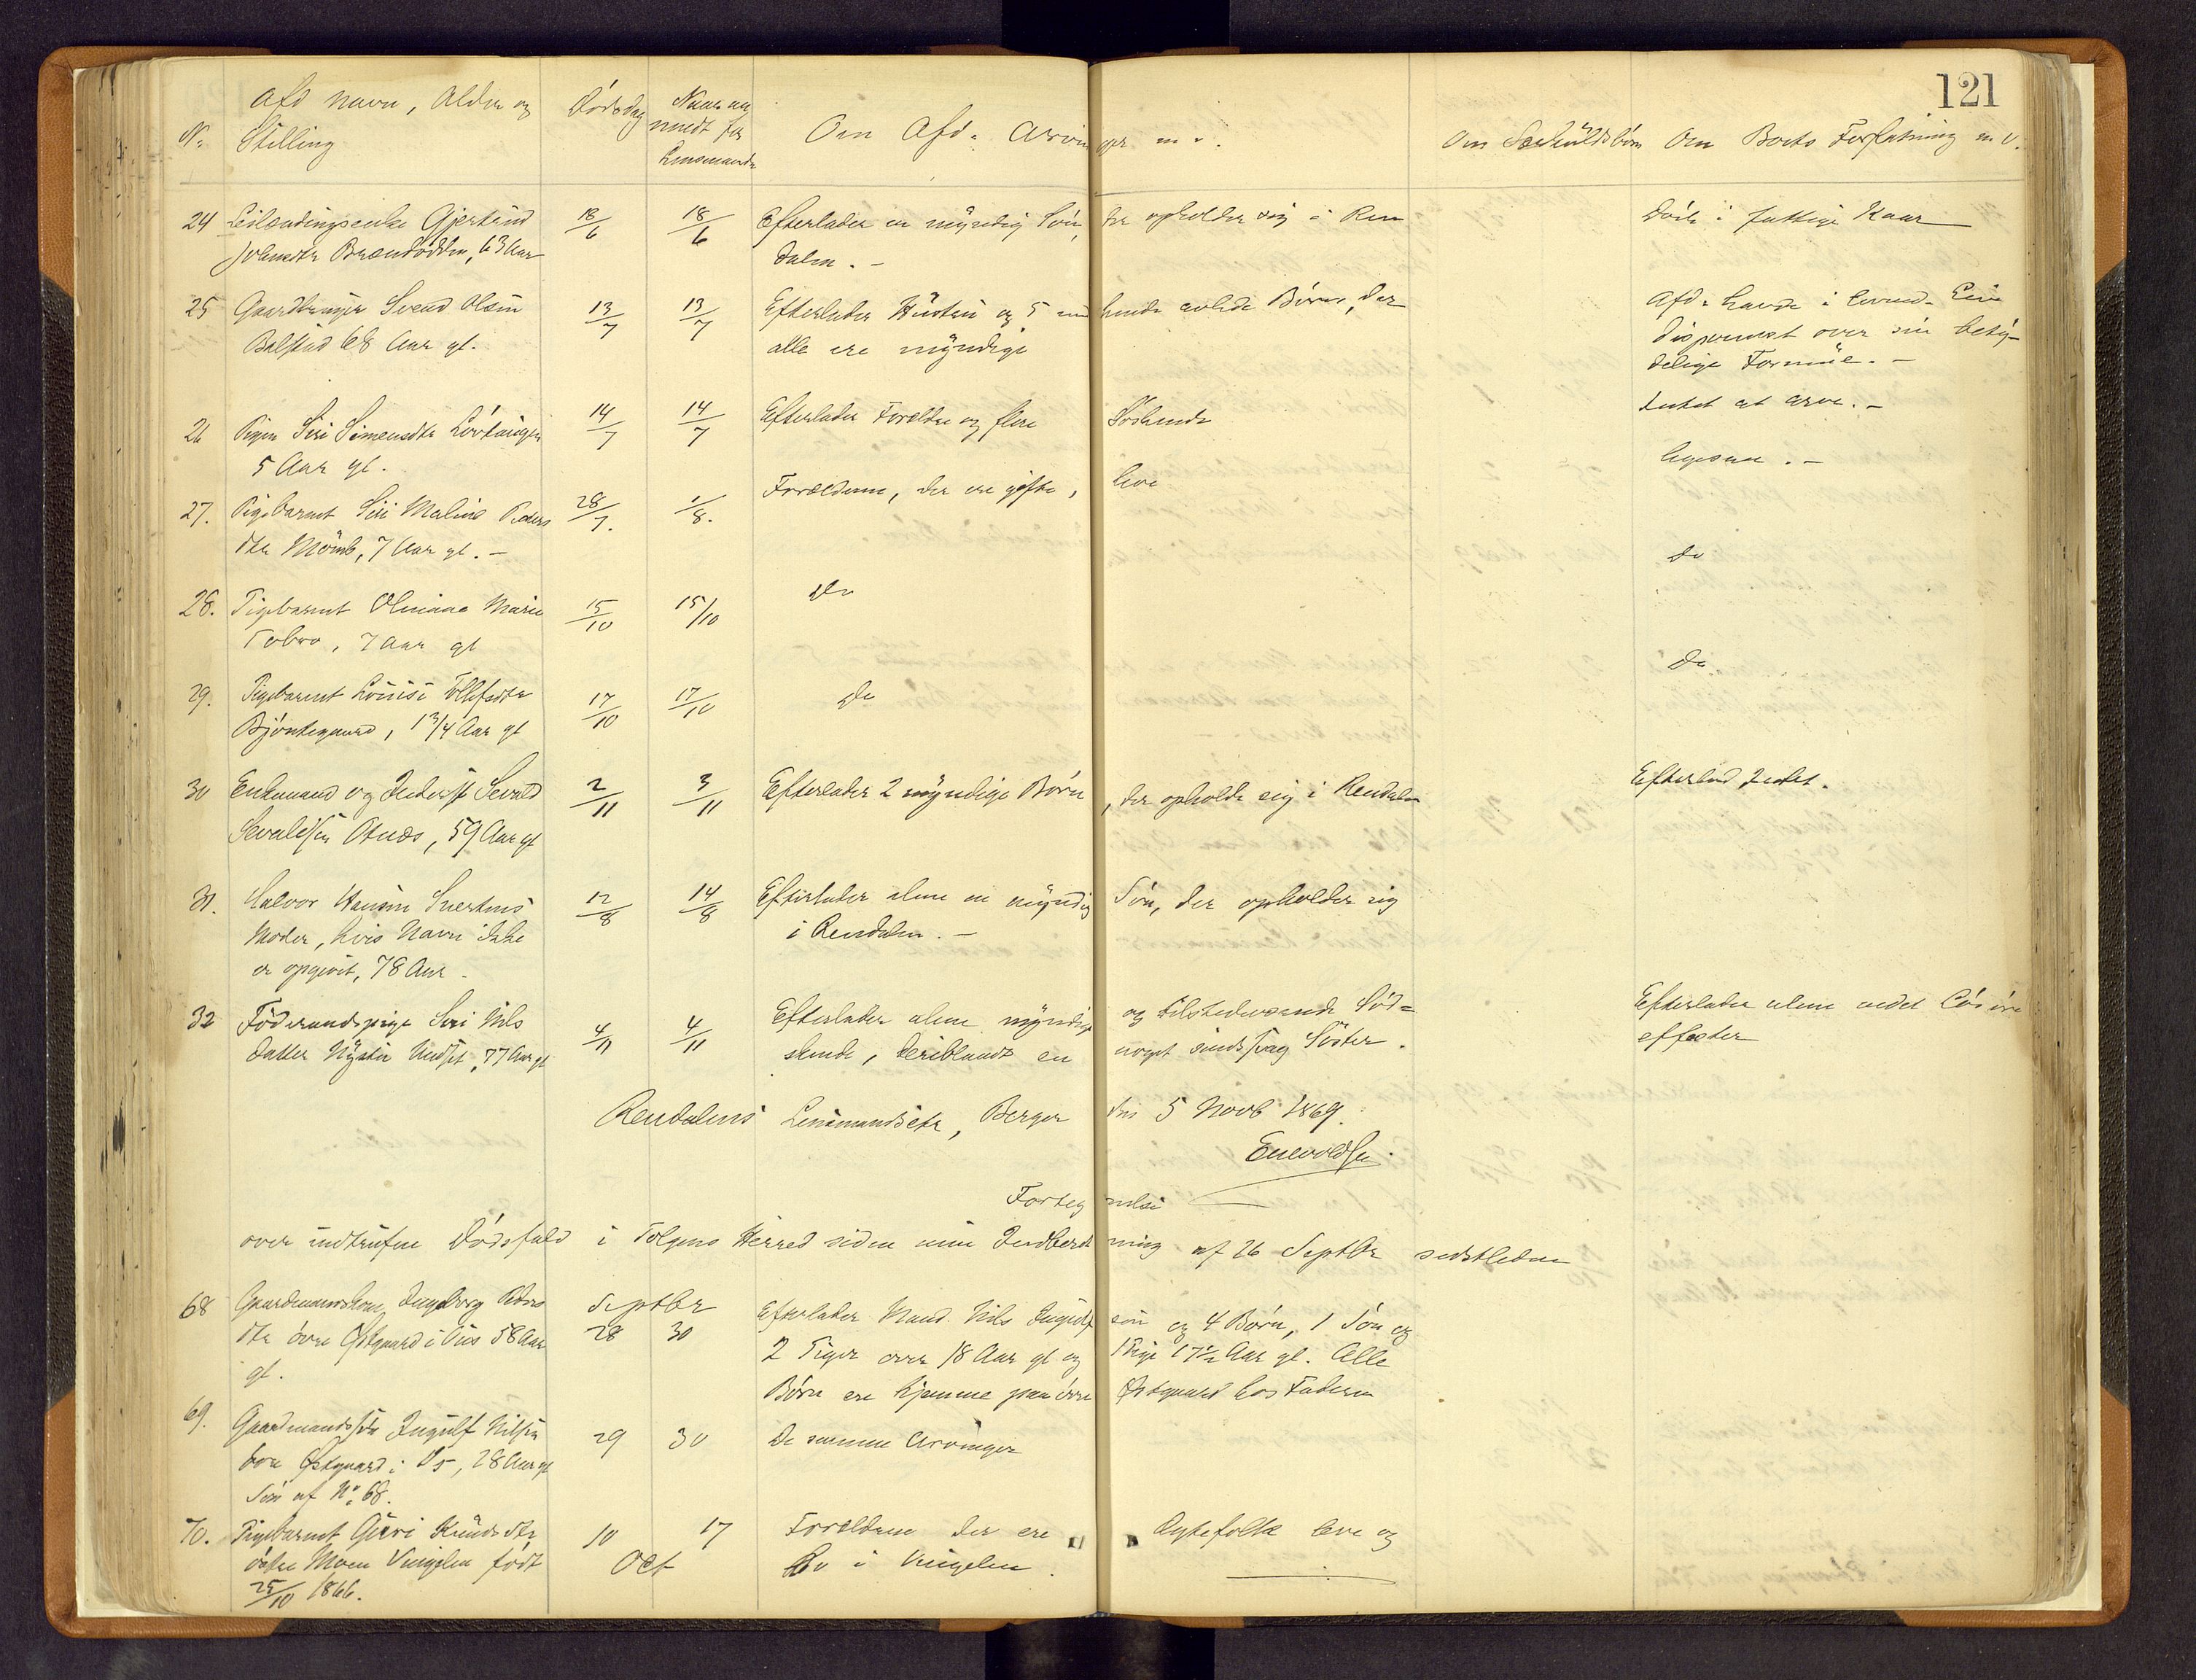 121
Afd Navn, Alder og Dødsdag Naar an
No Stilling meldt for Om Afd: Arvinger m v. Om Særkuldsbørn Om Boets Forfatning m v.
Lensmanden
24 Leilændingsenke Gjertrud 18/6 18/6 Efterlader en myndig Søn, der opholder sig i Ren Døde i fattige Kaar
Johnsdtr Brændodden, 63 Aar dalen. -
25 Gaardbruger Svend Olsen 13/7 13/7 Efterlader Hustru og 5 med hende avlede Børn, der Afd: havde i levende Live
Bolstad 68 Aar gl. alle ere myndige disponeret over sin bety-
delige Formue. -
26 Pigen Siri Simensdtr Løvtangen 14/7 14/7 Efterlader Forældre og flere Sødskende Intet at arve. -
5 Aar gl.
27. Pigebarnet Siri Maline Peders 28/7. 1/8. Forældrene, der ere gifte, leve ligesaa. -
dtr Mømb, 7 Aar gl. -
28. Pigebarnet Oliane Marie 15/10 15/10 do do
Tobro, 7 Aar gl
29. Pigebarnet Lovise Tollefsdtr 17/10 17/10 do do
Bjøntegaard, 1 3/4 Aar gl
30 Enkemand og Inderst Sevald 2/11 3/11 Efterlader 2 myndige Børn, der opholde sig i Rendalen Efterlod Intet.
Sevaldsen Atnæs, 59 Aar gl
31. Halvor Hansen Snertens 12/8 14/8 Efterlader alene en myndig Søn, der opholder sig
Moder, hvis Navn ikke i Rendalen. -
er opgivet, 78 Aar.
32 Føderaadspige Siri Nils 4/11 4/11 Efterlader alene myndige og tilstedeværende Sød= Efterlader alene endel Løsøre
datter Nystu Undset, 77 Aar gl skende, deriblandt en noget sindssvag Søster. effecter
Rendalens Lensmandsetr, Berger den 5 Novb 1869.
Enevoldsen.
Fortegnelse
over indtrufne Dødsfald i Tolgens Herred siden min Indberetning af 26 Septbr sidstleden
68 Gaardmandskone Ingeborg Peders Septbr Efterlader Mand Nils Ingulfsen og 4 Børn, 1 Søn og
dtr øvre Østgaard i Aas 58 Aar 28 30 2 Piger over 18 Aar gl og 1 Pige 17½ Aar gl. Alle
gl. Børn ere hjemme paa øvre Østgaard hos Faderen
69. Gaardmandssøn Ingulf Nilsen 29 30 De samme Arvinger
øvre Østgaard i Os, 28 Aar gl
Søn af No 68.
70. Pigebarnet Guri Knudsdtr 10 17 Forældrene der ere Ægtefolk leve og
østre Moen Vingelen født Oct bo i Vingelen.
25/10 1866.